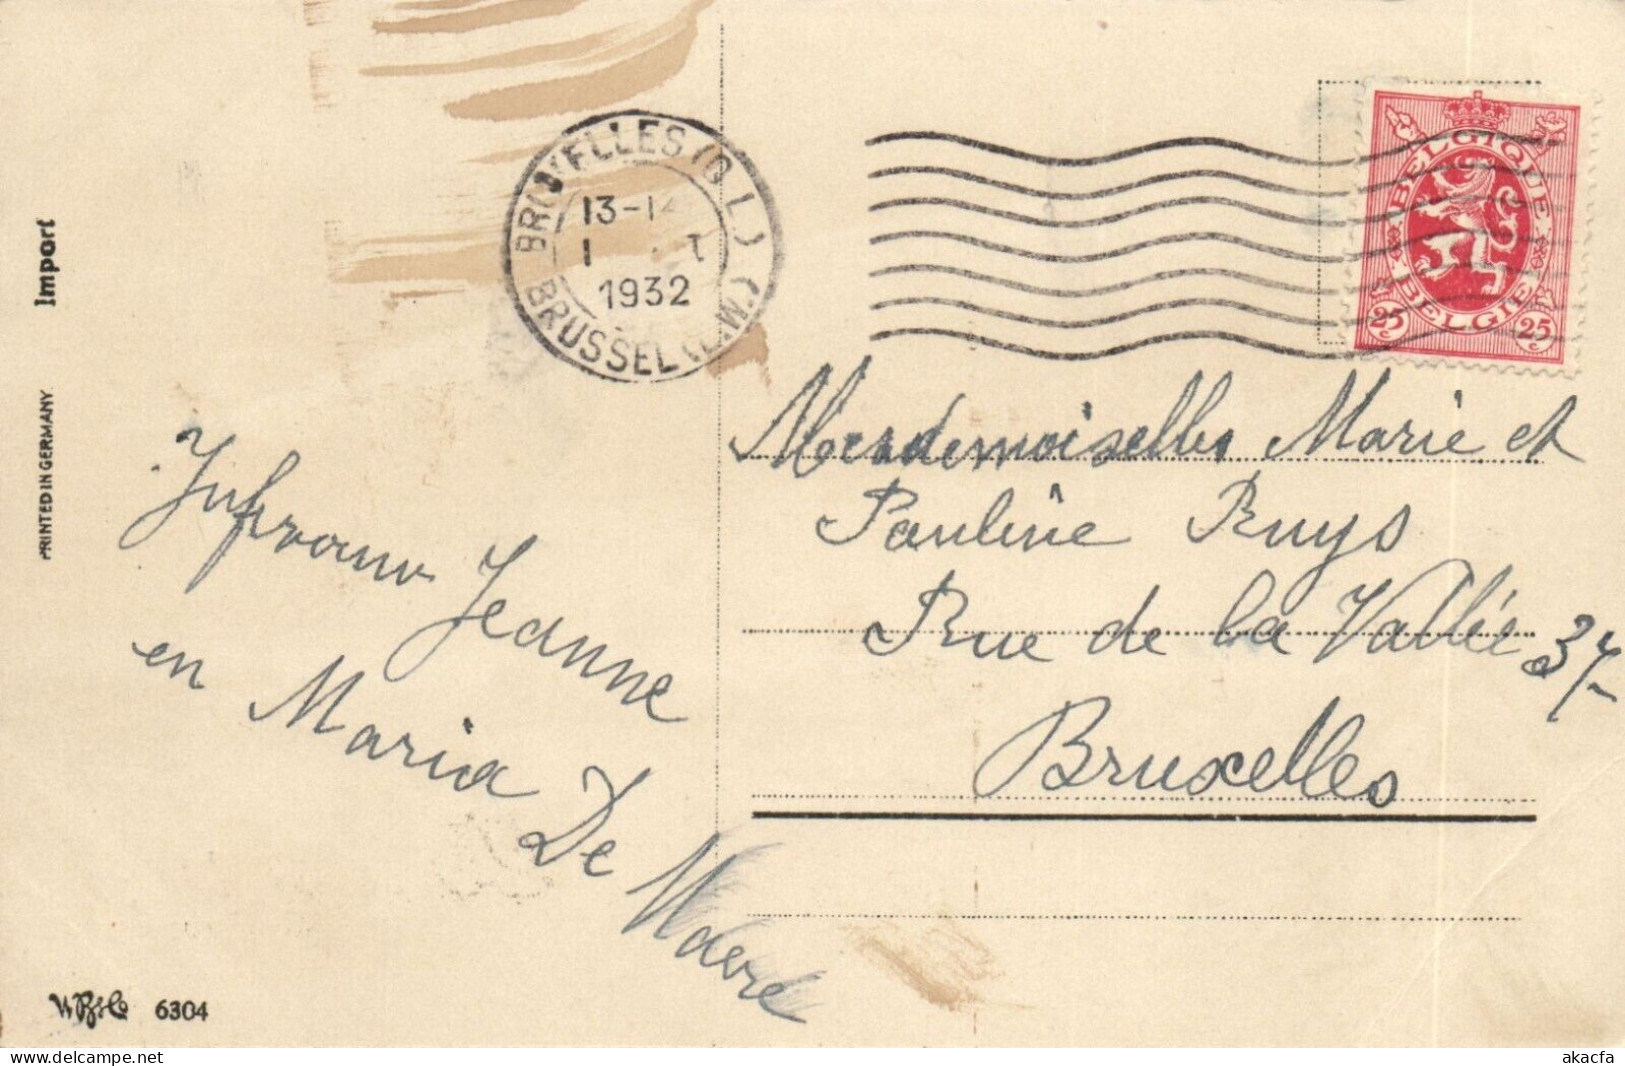 Import
PRINTED IN GERMANY
BRUXELLES (Q.L.)
13-14
1932
BRUSSEL
BELGIQUE
BELGIE
25c 25c
Mesdemoiselles Marie et
Pauline Ruys
Rue de la Vallée 37
Bruxelles
Juffrouw Jeanne
en Maria De
6304
akacfa
delcampe.net